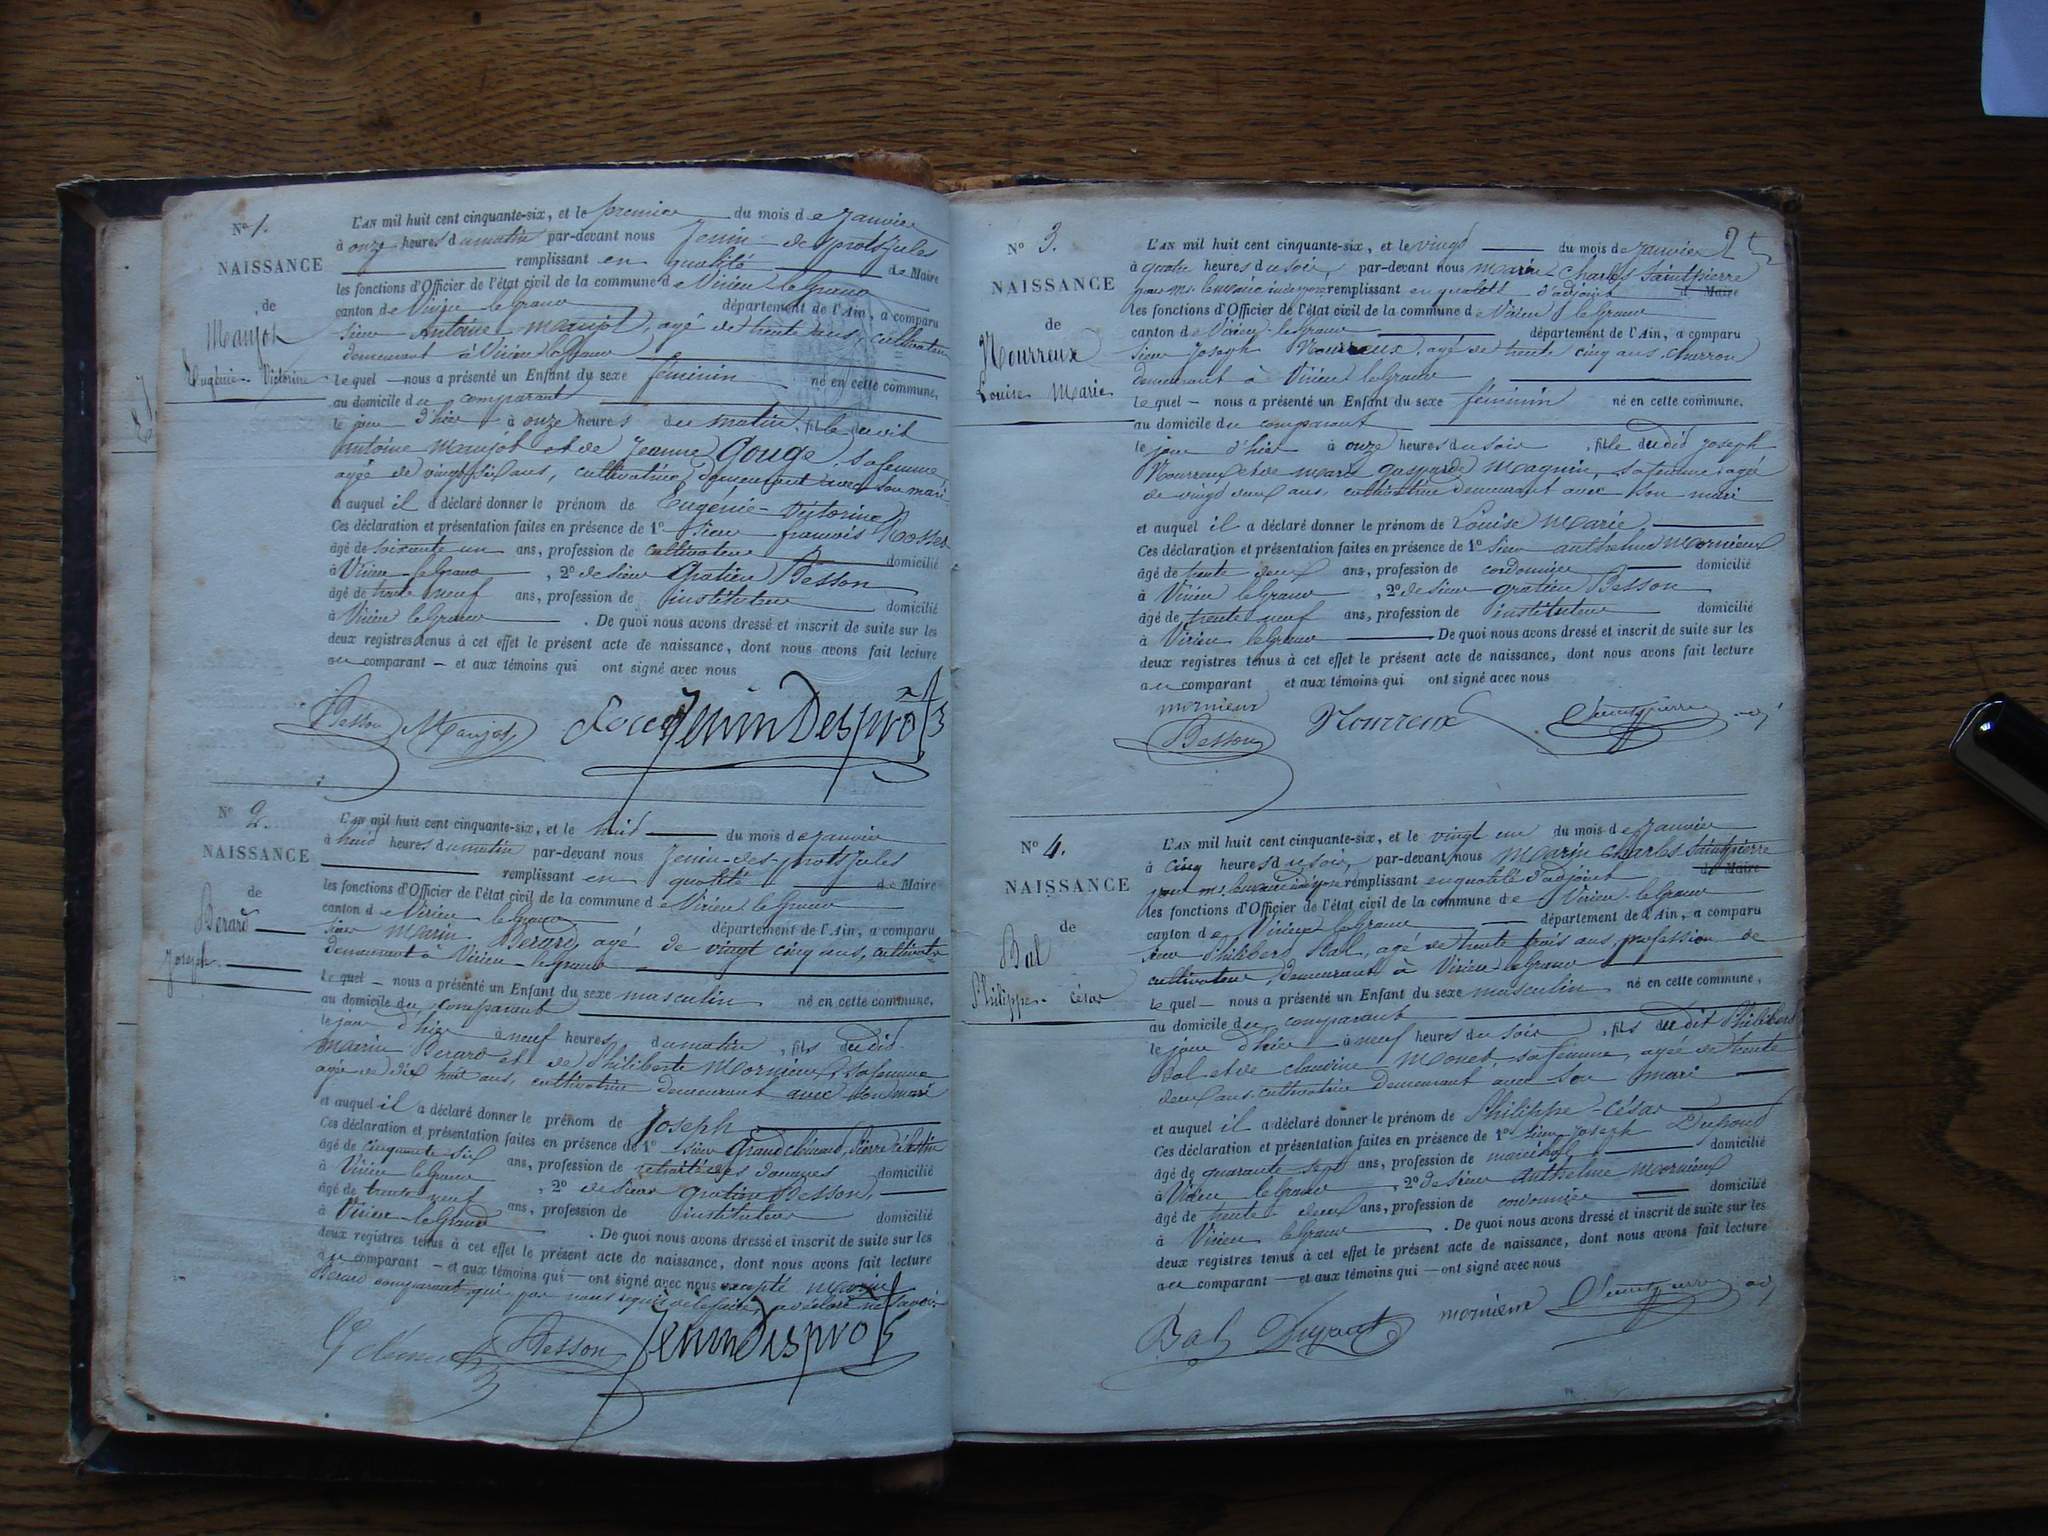 N° 1.
NAISSANCE
de
Manjot
Eugénie-Victorine
L'AN mil huit cent cinquante-six, et le premier du mois de Janvier
à onze heures du matin par-devant nous Jenin-des-prots Jules
remplissant en qualité de Maire
les fonctions d'Officier de l'état civil de la commune de Virieu le Grand
canton de Virieu le Grand département de l'Ain, a comparu
sieur Antoine Manjot, agé de trente ans, cultivateur
demeurant à Virieu le Grand
lequel nous a présenté un Enfant du sexe féminin né en cette commune,
au domicile du comparant
le jour d'hier à onze heures du matin, fille dudit
antoine Manjot et de Jeanne Gouge, sa femme
agée de vingt six ans, cultivatrice, demeurant avec son mari
et auquel il a déclaré donner le prénom de Eugénie-Victorine
Ces déclaration et présentation faites en présence de 1° sieur françois Rosset
âgé de soixante un ans, profession de cultivateur domicilié
à Virieu-le Grand, 2° de sieur Gratien Besson
âgé de trente neuf ans, profession de instituteur domicilié
à Virieu le Grand. De quoi nous avons dressé et inscrit de suite sur les
deux registres tenus à cet effet le présent acte de naissance, dont nous avons fait lecture
au comparant — et aux témoins qui ont signé avec nous
Besson Manjot JeninDesprots
N° 2.
NAISSANCE
de
Berard
Joseph
L'AN mil huit cent cinquante-six, et le huit du mois de Janvier
à huit heures du matin par-devant nous Jenin-des-prots Jules
remplissant en qualité de Maire
les fonctions d'Officier de l'état civil de la commune de Virieu le Grand
canton de Virieu le Grand département de l'Ain, a comparu
sieur Marin Berard, agé de vingt cinq ans, cultivateur
demeurant à Virieu-le grand
lequel — nous a présenté un Enfant du sexe masculin né en cette commune,
au domicile du comparant
le jour d'hier à neuf heures du matin, fils dudit
Marin Berard et de Philiberte Mornieux, sa femme
agée de dix huit ans, cultivatrice demeurant avec son mari
et auquel il a déclaré donner le prénom de Joseph
Ces déclaration et présentation faites en présence de 1° sieur Grandclément, Pierre Célestin
âgé de cinquante six ans, profession de retraité des douanes domicilié
à Virieu le Grand, 2° de sieur gratien Besson,
âgé de trente neuf ans, profession de instituteur domicilié
à Virieu-le Grand. De quoi nous avons dressé et inscrit de suite sur les
deux registres tenus à cet effet le présent acte de naissance, dont nous avons fait lecture
au comparant — et aux témoins qui — ont signé avec nous excepté Marin
Berard comparant qui par nous requis de le faire, a déclaré ne savoir.
Besson JeninDesprots
2
N° 3.
NAISSANCE
de
Nourreux
Louise Marie
L'AN mil huit cent cinquante-six, et le vingt du mois de Janvier
à quatre heures du soir, par-devant nous Marin Charles Saintpierre
pour mr. le maire remplissant en qualité d'adjoint de Maire
les fonctions d'Officier de l'état civil de la commune de Virieu le Grand
canton de Virieu-le Grand département de l'Ain, a comparu
sieur Joseph Nourreux, agé de trente cinq ans, charron
demeurant à Virieu le Grand
lequel — nous a présenté un Enfant du sexe féminin né en cette commune,
au domicile du comparant
le jour d'hier à onze heures du soir, fille dudit Joseph
Nourreux et de Marie gasparde Magnin, sa femme, agée
de vingt deux ans, cultivatrice demeurant avec son mari
et auquel il a déclaré donner le prénom de Louise Marie.
Ces déclaration et présentation faites en présence de 1° sieur anthelme Mornieux
âgé de trente deux ans, profession de cordonnier domicilié
à Virieu le Grand, 2° de sieur gratien Besson
âgé de trente neuf ans, profession de instituteur domicilié
à Virieu le Grand. De quoi nous avons dressé et inscrit de suite sur les
deux registres tenus à cet effet le présent acte de naissance, dont nous avons fait lecture
au comparant et aux témoins qui ont signé avec nous
mornieux
Besson Nourreux Saintpierre adj
N° 4.
NAISSANCE
de
Bal
Philippe-César
L'AN mil huit cent cinquante-six, et le vingt un du mois de Janvier
à cinq heures du soir, par-devant nous Marin Charles Saintpierre
pour mr. le maire remplissant en qualité d'adjoint de Maire
les fonctions d'Officier de l'état civil de la commune de Virieu-le Grand
canton de Virieu le Grand département de l'Ain, a comparu
sieur Philibert Bal, agé de trente trois ans, profession de
cultivateur, demeurant à Virieu le Grand
lequel — nous a présenté un Enfant du sexe masculin né en cette commune,
au domicile du comparant
le jour d'hier à neuf heures du soir, fils dudit Philibert
Bal et de claudine Monet, sa femme, agée de trente
deux ans, cultivatrice demeurant avec son mari
et auquel il a déclaré donner le prénom de Philippe-César
Ces déclaration et présentation faites en présence de 1° sieur Joseph Dupont
âgé de quarante sept ans, profession de maréchal domicilié
à Virieu le Grand, 2° de sieur anthelme Mornieux
âgé de trente deux ans, profession de cordonnier domicilié
à Virieu le Grand. De quoi nous avons dressé et inscrit de suite sur les
deux registres tenus à cet effet le présent acte de naissance, dont nous avons fait lecture
au comparant — et aux témoins qui — ont signé avec nous
Bal Dupont mornieux Saintpierre adj